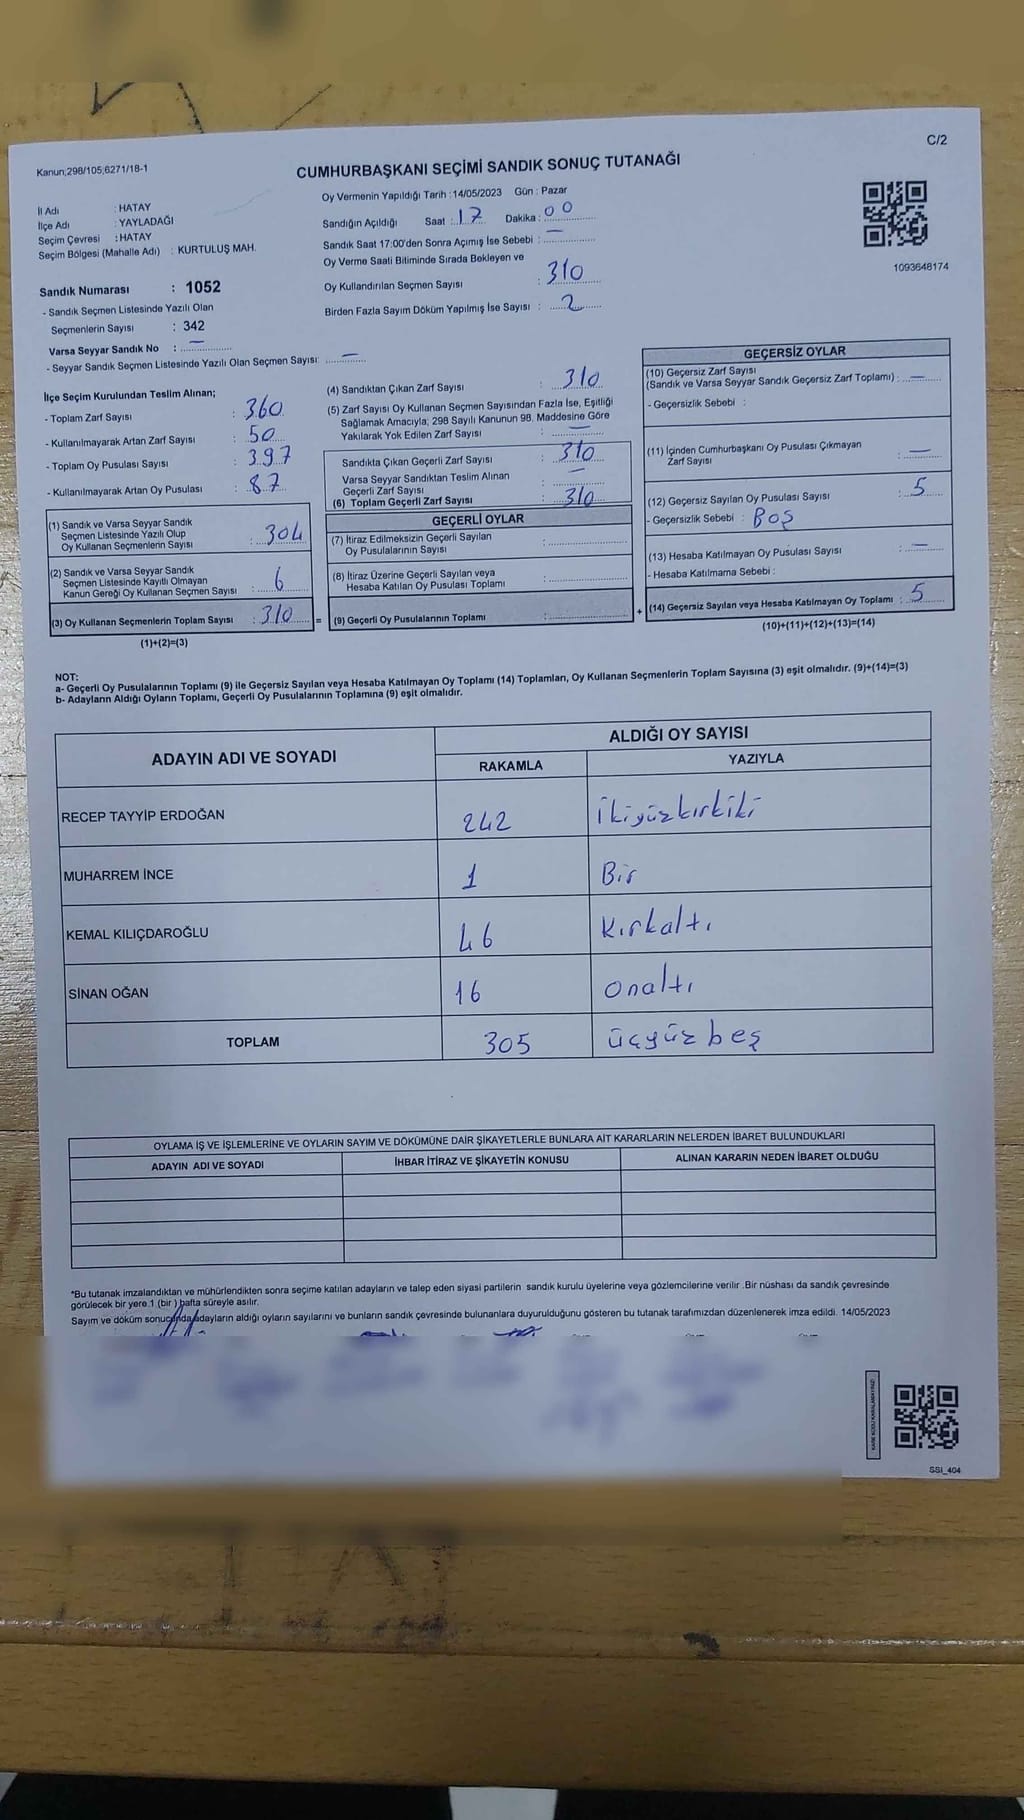 C/2
Kanun;298/105;6271/18-1
CUMHURBAŞKANI SEÇİMİ SANDIK SONUÇ TUTANAĞI
İl Adı : HATAY
İlçe Adı : YAYLADAĞI
Seçim Çevresi : HATAY
Seçim Bölgesi (Mahalle Adı) : KURTULUŞ MAH.
Oy Vermenin Yapıldığı Tarih : 14/05/2023 Gün : Pazar
Sandığın Açıldığı Saat : 17 Dakika : 00
Sandık Saat 17:00'den Sonra Açımış İse Sebebi : —
Oy Verme Saati Bitiminde Sırada Bekleyen ve
Oy Kullandırılan Seçmen Sayısı : 310
Birden Fazla Sayım Döküm Yapılmış İse Sayısı : 2
1093648174
Sandık Numarası : 1052
- Sandık Seçmen Listesinde Yazılı Olan
Seçmenlerin Sayısı : 342
Varsa Seyyar Sandık No : —
- Seyyar Sandık Seçmen Listesinde Yazılı Olan Seçmen Sayısı: —
İlçe Seçim Kurulundan Teslim Alınan;
- Toplam Zarf Sayısı : 360
- Kullanılmayarak Artan Zarf Sayısı : 50
- Toplam Oy Pusulası Sayısı : 397
- Kullanılmayarak Artan Oy Pusulası : 87
(1) Sandık ve Varsa Seyyar Sandık
Seçmen Listesinde Yazılı Olup
Oy Kullanan Seçmenlerin Sayısı : 304
(2) Sandık ve Varsa Seyyar Sandık
Seçmen Listesinde Kayıtlı Olmayan
Kanun Gereği Oy Kullanan Seçmen Sayısı : 6
(3) Oy Kullanan Seçmenlerin Toplam Sayısı : 310
(1)+(2)=(3)
(4) Sandıktan Çıkan Zarf Sayısı : 310
(5) Zarf Sayısı Oy Kullanan Seçmen Sayısından Fazla İse, Eşitliği
Sağlamak Amacıyla; 298 Sayılı Kanunun 98. Maddesine Göre
Yakılarak Yok Edilen Zarf Sayısı : —
Sandıkta Çıkan Geçerli Zarf Sayısı : 310
Varsa Seyyar Sandıktan Teslim Alınan
Geçerli Zarf Sayısı : —
(6) Toplam Geçerli Zarf Sayısı : 310
=
GEÇERLİ OYLAR
(7) İtiraz Edilmeksizin Geçerli Sayılan
Oy Pusulalarının Sayısı :
(8) İtiraz Üzerine Geçerli Sayılan veya
Hesaba Katılan Oy Pusulası Toplamı :
(9) Geçerli Oy Pusulalarının Toplamı :
+
GEÇERSİZ OYLAR
(10) Geçersiz Zarf Sayısı
(Sandık ve Varsa Seyyar Sandık Geçersiz Zarf Toplamı) : —
- Geçersizlik Sebebi :
(11) İçinden Cumhurbaşkanı Oy Pusulası Çıkmayan
Zarf Sayısı : —
(12) Geçersiz Sayılan Oy Pusulası Sayısı : 5
- Geçersizlik Sebebi : BOŞ
(13) Hesaba Katılmayan Oy Pusulası Sayısı : —
- Hesaba Katılmama Sebebi :
(14) Geçersiz Sayılan veya Hesaba Katılmayan Oy Toplamı : 5
(10)+(11)+(12)+(13)=(14)
NOT:
a- Geçerli Oy Pusulalarının Toplamı (9) ile Geçersiz Sayılan veya Hesaba Katılmayan Oy Toplamı (14) Toplamları, Oy Kullanan Seçmenlerin Toplam Sayısına (3) eşit olmalıdır. (9)+(14)=(3)
b- Adayların Aldığı Oyların Toplamı, Geçerli Oy Pusulalarının Toplamına (9) eşit olmalıdır.
ADAYIN ADI VE SOYADI
ALDIĞI OY SAYISI
RAKAMLA YAZIYLA
RECEP TAYYİP ERDOĞAN 242 İkiyüzkırkiki
MUHARREM İNCE 1 Bir
KEMAL KILIÇDAROĞLU 46 Kırkaltı
SİNAN OĞAN 16 Onaltı
TOPLAM 305 üçyüzbeş
OYLAMA İŞ VE İŞLEMLERİNE VE OYLARIN SAYIM VE DÖKÜMÜNE DAİR ŞİKAYETLERLE BUNLARA AİT KARARLARIN NELERDEN İBARET BULUNDUKLARI
ADAYIN ADI VE SOYADI İHBAR İTİRAZ VE ŞİKAYETİN KONUSU ALINAN KARARIN NEDEN İBARET OLDUĞU
*Bu tutanak imzalandıktan ve mühürlendikten sonra seçime katılan adayların ve talep eden siyasi partilerin sandık kurulu üyelerine veya gözlemcilerine verilir .Bir nüshası da sandık çevresinde
görülecek bir yere 1 (bir ) hafta süreyle asılır.
Sayım ve döküm sonucunda adayların aldığı oyların sayılarını ve bunların sandık çevresinde bulunanlara duyurulduğunu gösteren bu tutanak tarafımızdan düzenlenerek imza edildi. 14/05/2023
SSI_404